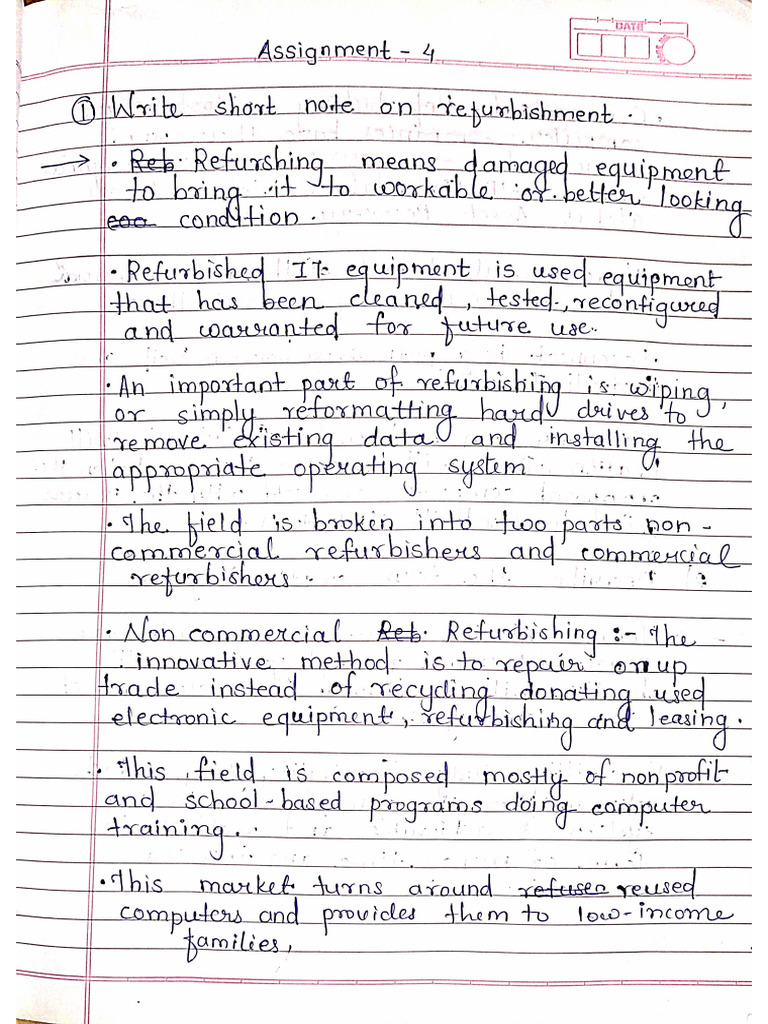 DATE
Assignment - 4
① Write short note on refurbishment.
→ • Reb Refurshing means damaged equipment
to bring it to workable or better looking
eoo condition.
• Refurbished IT equipment is used equipment
that has been cleaned, tested, reconfigured
and warranted for future use.
• An important part of refurbishing is wiping,
or simply reformatting hard drives to
remove existing data and installing the
appropriate operating system
• The field is broken into two parts non-
commercial refurbishers and commercial
refurbishers.
• Non commercial Reb. Refurbishing :- The
innovative method is to repair on up
trade instead of recycling donating used
electronic equipment, refurbishing and leasing.
• This field is composed mostly of nonprofit
and school-based programs doing computer
training.
• This market turns around refusen reused
computers and provides them to low-income
families,